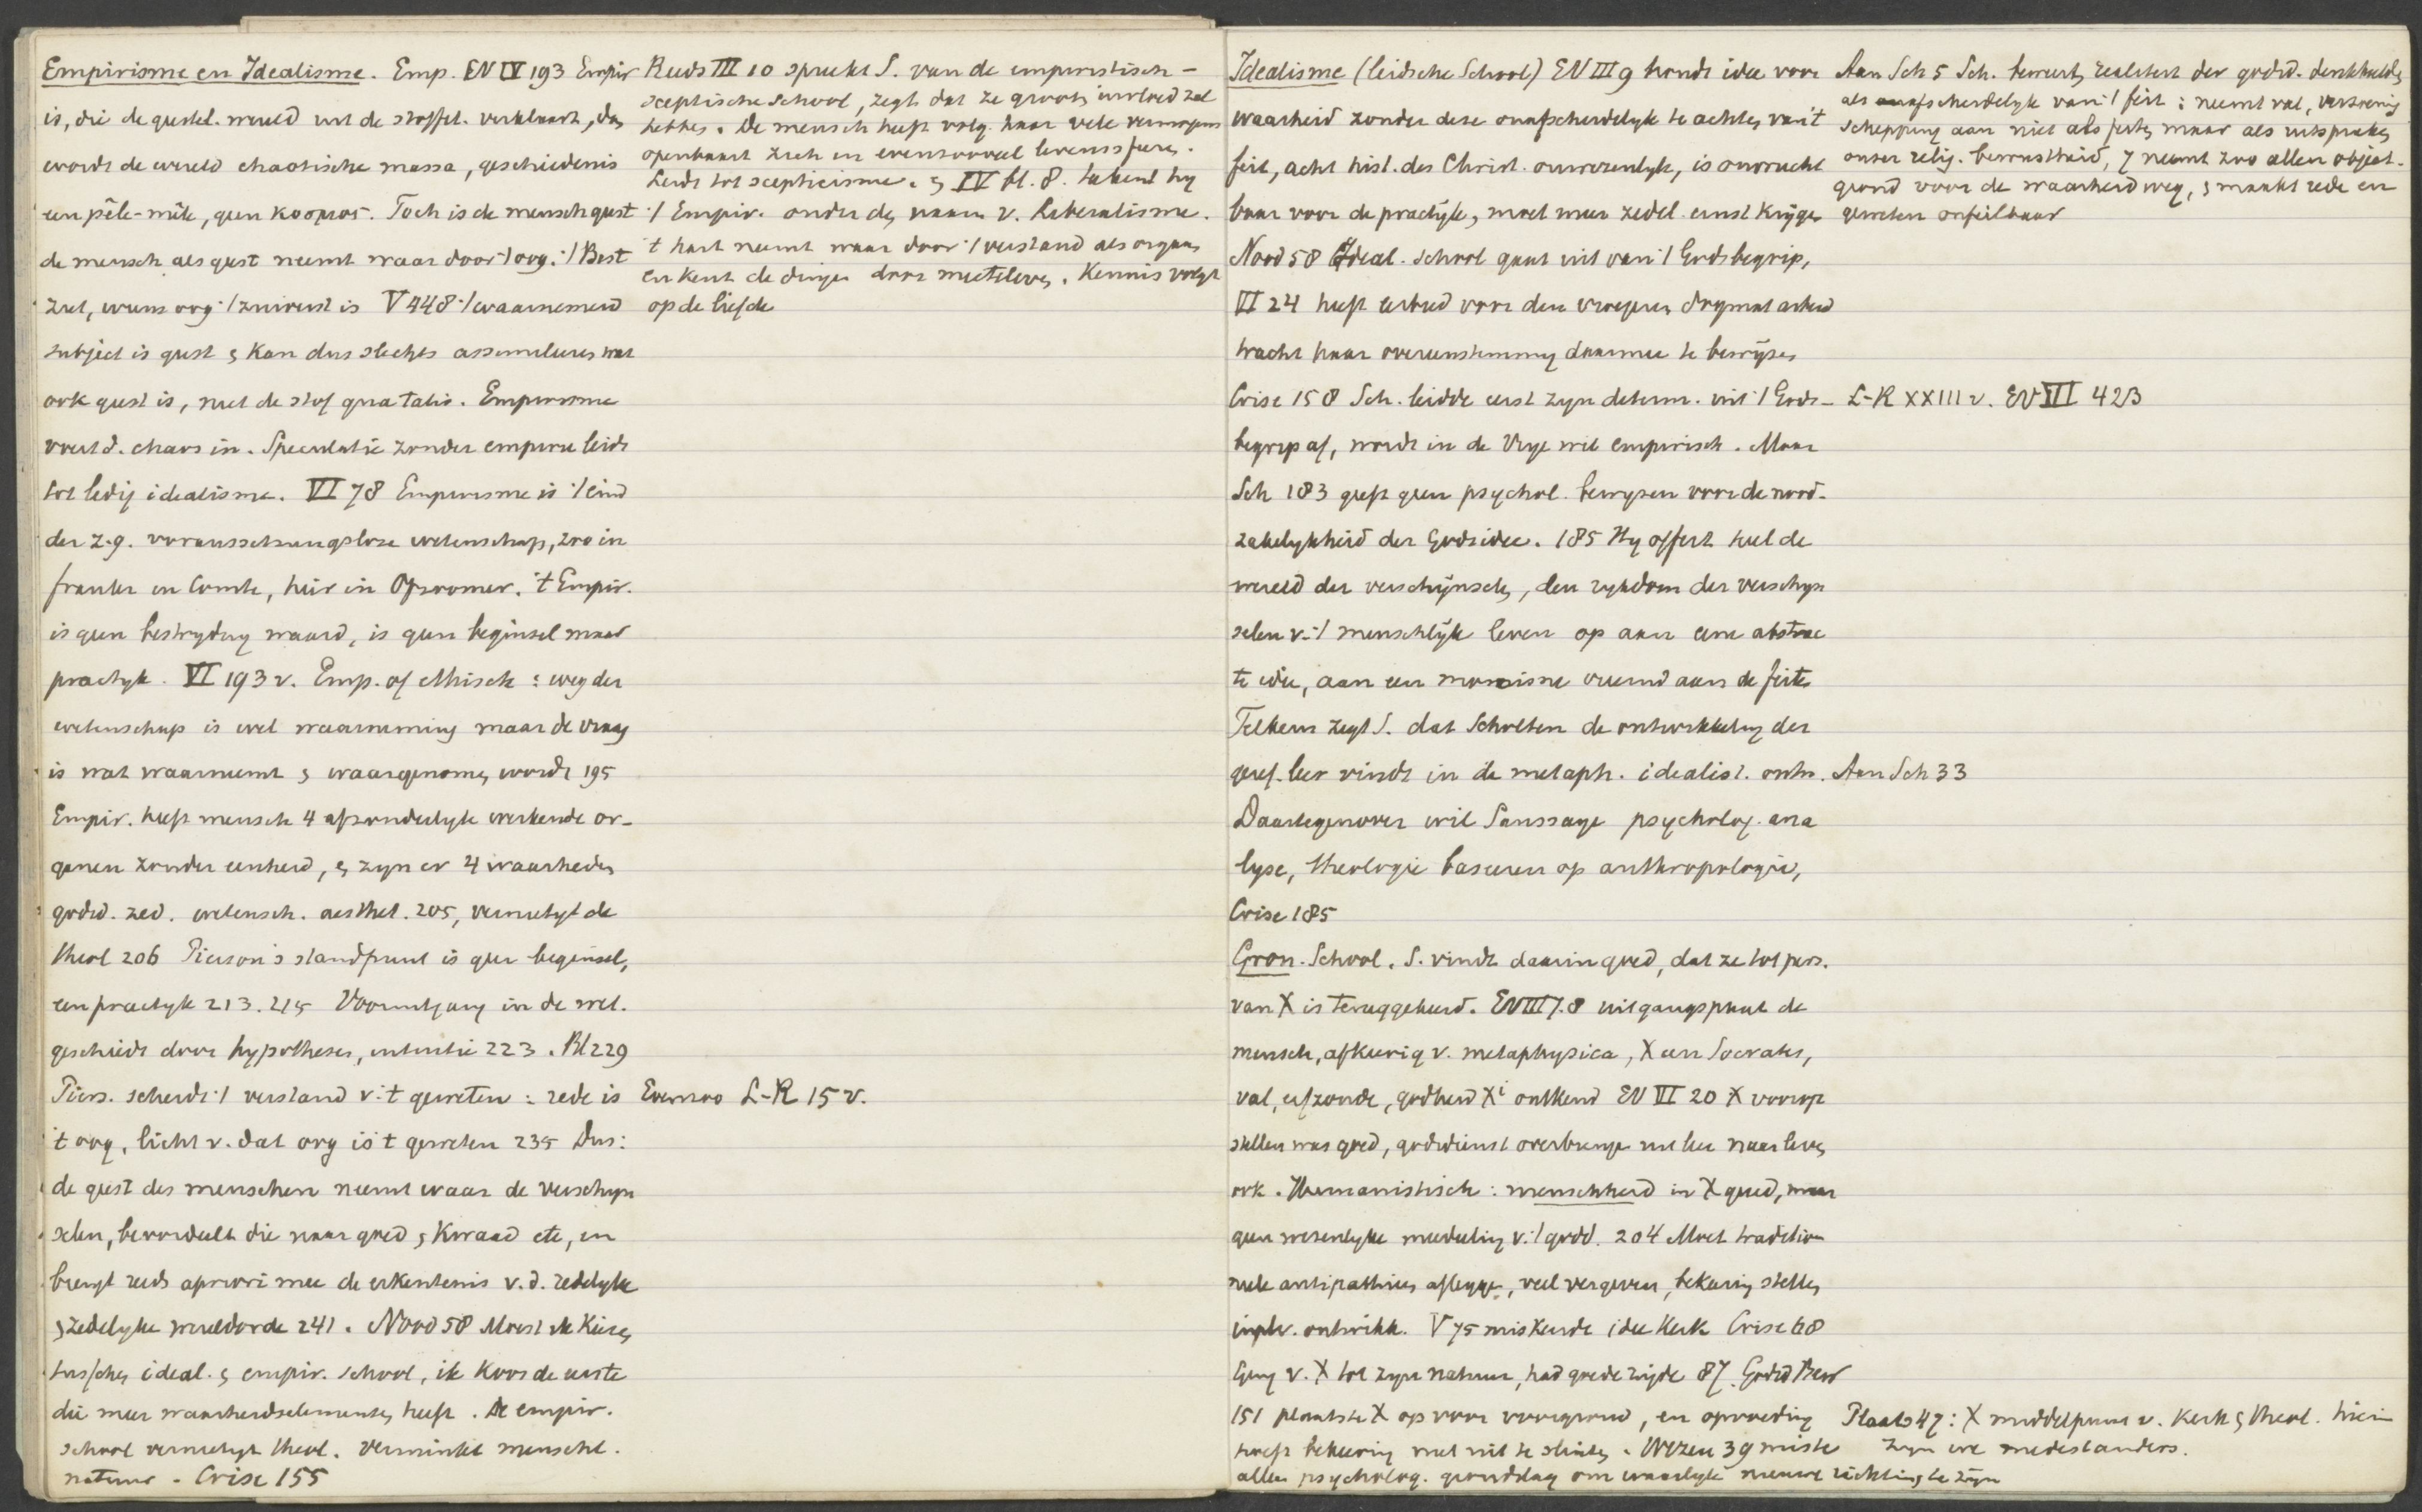 Empirisme en Idealisme. Emp. EV IV 193 Empir
is, die de geestel. wereld uit de stoffel. verklaart, dan
wordt de wereld chaotische massa, geschiedenis
een pêle-mêle, geen κοσμος. Toch is de mensch geest
de mensch als geest neemt waar door 't org. 't Best
ziet, wiens oog 't zuiverst is V 448 't waarnemend
subject is geest & kan dus slechts assimileren wat
ook geest is, niet de stof qua talis. Empirisme
voert d. chaos in. Speculatie zonder empirie leidt
tot ledig idealisme. VI 78 Empirisme is 't eind
der z.g. voraussetzungslose wetenschap, zoo in
Frankr en Comte, hier in Opzoomer. 't Empir.
is geen bestryding waard, is geen beginsel maar
practyk. VI 193 v. Emp. of ethisch : weg der
wetenschap is wel waarneming maar de vraag
is wat waarneemt & waargenomen wordt 195
Empir. heeft mensch 4 afzonderlyk werkende or-
ganen zonder eenheid, & zyn er 4 waarheden
godsd. zed. wetensch. aesthet. 205, vernietigt de
theol 206 Pierson's standpunt is geen beginsel,
een practyk 213. 215 Vooruitgang in de wet.
geschiedt door hypotheses, intuitie 223. Bl 229
Piers. scheidt 't verstand v. 't geweten : rede is
't oog, licht v. dat oog is 't geweten 235 Dus:
de geest des menschen neemt waar de verschyn
selen, beoordeelt die naar goed & kwaad etc, en
brengt reeds apriori mee de erkentenis v.d. redelyke
& zedelyke wereldorde 241. Nood 58 Moest ik kiezen
tusschen ideal. & empir. school, ik koos de eerste
die meer waarheidselementen heeft. De empir.
school vernietigt theol. verminkt menschl.
natuur. Crise 155
Reeds III 10 spreekt S. van de empiristisch-
sceptische school, zegt dat ze groote invloed zal
hebben. De mensch heeft volg. haar vele vermogens
openbaart zich in evenzooveel levenssferen.
Leidt tot scepticisme. & IV bl. 8. tekent hy
't Empir. onder de naam v. Liberalisme.
't hart neemt waar door 't verstand als orgaan
en kent de dingen door meeleven. Kennis volgt
op de liefde
Evenzoo L-R 15 v.
Idealisme (leidsche School) EV III 9 houdt idee voor
waarheid zonder deze onafscheidelyk te achten van 't
feit, acht hist. des Christ. onwezenlyk, is onvrucht
baar voor de practyk, moet meer zedel. ernst krygen
Nood 58 Ideal. school gaat uit van 't Godsbegrip,
VI 24 heeft eerbied voor den vroegeren dogmat arbeid
tracht haar overeenstemming daarmee te bewyzen
Crise 158 Sch. leidde eerst zyn determ. uit 't Gods-
begrip af, wordt in de Vrye wil empirisch. Maar
Sch 183 geeft geen psychol. bewyzen voor de nood-
zakelykheid der Godsidee. 185 Hy offert heel de
wereld der verschijnselen, den rykdom der verschyn
selen v. 't menschlijk leven op aan eene abstrac
te idee, aan een monisme vreemd aan de feiten
Telkens zegt S. dat Scholten de ontwikkeling der
geref. leer vindt in de metaph. idealist. ontw.
Daartegenover wil Saussaye psycholog. ana
lyse, theologie baseeren op anthropologie,
Crise 185
Gron. School. S. vindt daarin goed, dat ze tot pers.
van X is teruggekeerd. EV III 7.8 uitgangspunt de
mensch, afkeerig v. metaphysica, X een Socrates,
val, erfzonde, godheid Xi ontkend EV VI 20 X voorop
stellen was goed, godsdienst overbrengen uit leer naar leven
ook. Humanistisch : menschheid in X goed, maar
geen wezenlyke mededeeling v. 't godd. 204 Moet traditio-
neele antipathieen afleggen, veel vergeven, bekeering stellen
in plv. ontwikk. V 75 miskende idee Kerk Crise 68
terug v. X tot zyn natuur, had goede zijde 87. Godsd Bew
151 plaatste X op voor voorgrond, en opvoeding
hoeft bekeering niet uit te sluiten. Wezen 39 miste
allen psycholog. grondslag om waarlyk nieuwe richting te zijn
Aan Sch 5 Sch. beweert, realiteit der godsd. denkbeelden
als onafscheidelyk van 't feit : neemt val, verzoening
schepping aan niet als feiten maar als uitspraken
onzer relig. bewustheid, & neemt zoo allen object.
grond voor de waarheid weg, & maakt rede en
geweten onfeilbaar
L-R XXIII v. EV VII 423
Aan Sch 33
Plaats 47 : X middelpunt v. Kerk & theol. hierin
zyn we medestanders.